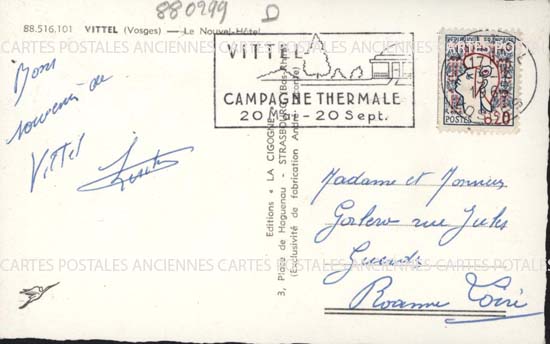 880299 D
88.516.101 VITTEL (Vosges) — Le Nouvel-Hôtel
CARTES POSTALES ANCIENNES CARTES POSTALES ANCIENNES CARTES POSTALES
Bons
souvenirs de
Vittel
VITTEL
CAMPAGNE THERMALE
20 Mai - 20 Sept.
REPUBLIQUE FRANCAISE
POSTES
0,20
VOSGES
Editions " LA CIGOGNE "
3, Place de Haguenau - STRASBOURG (Bas-Rhin)
(Exclusivité de fabrication André Leconte)
Madame et Monsieur
rue Jules
Guesde
Roanne Loire
CARTES POSTALES ANCIENNES CARTES POSTALES ANCIENNES CARTES POSTALES